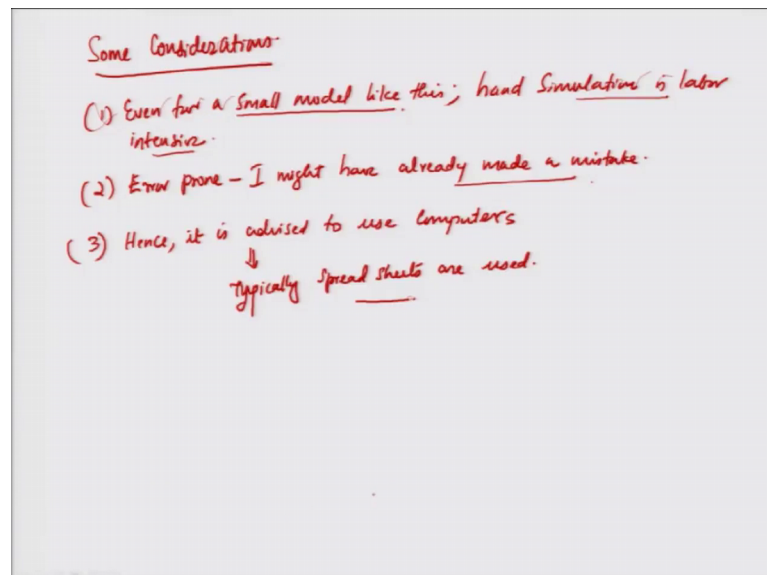 Some Considerations
(1) Even for a small model like this; hand simulation is labor
intensive.
(2) Error prone - I might have already made a mistake.
(3) Hence, it is advised to use computers
⇓
Typically spread sheets are used.